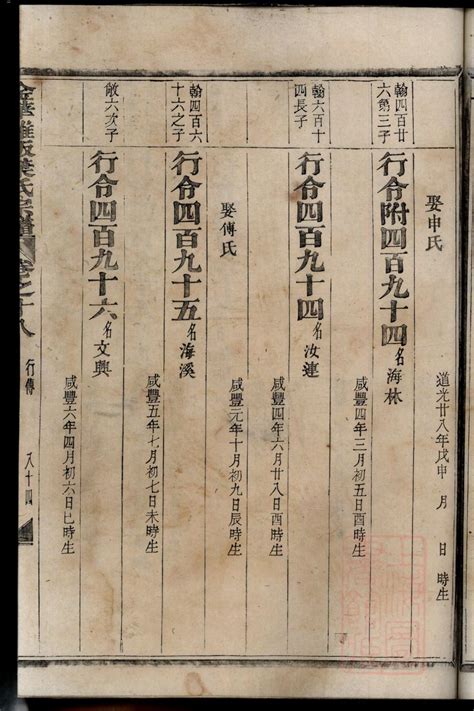 娶申氏
道光廿八年戊申 月 日時生
翰四百廿
六第三子
行令附四百九十四名海林
咸豐四年三月初五日酉時生
翰六百十
四長子
行令四百九十四名汝連
咸豐四年六月廿八日酉時生
娶傅氏
咸豐元年十月初九日辰時生
翰四百六
十六之子
行令四百九十五名海溪
咸豐五年七月初七日未時生
敵六次子
行令四百九十六名文興
咸豐六年四月初六日巳時生
氏宗譜 卷之十八 行傳 八十四